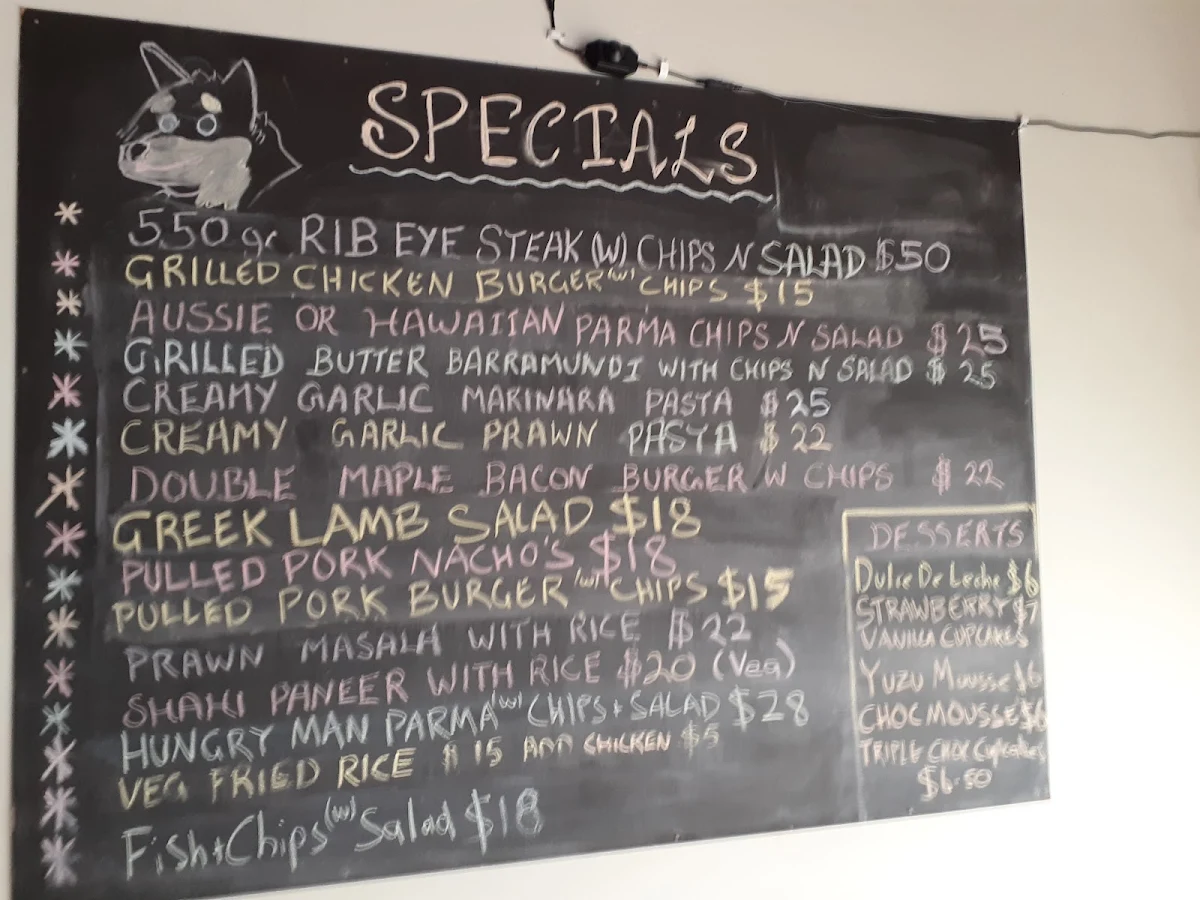 SPECIALS
550 gr RIB EYE STEAK (W) CHIPS N SALAD $50
GRILLED CHICKEN BURGER (W) CHIPS $15
AUSSIE OR HAWAIIAN PARMA CHIPS N SALAD $25
GRILLED BUTTER BARRAMUNDI WITH CHIPS N SALAD $25
CREAMY GARLIC MARINARA PASTA $25
CREAMY GARLIC PRAWN PASTA $22
DOUBLE MAPLE BACON BURGER W CHIPS $22
GREEK LAMB SALAD $18
PULLED PORK NACHO'S $18
PULLED PORK BURGER (W) CHIPS $15
PRAWN MASALA WITH RICE $22
SHAHI PANEER WITH RICE $20 (Veg)
HUNGRY MAN PARMA (W) CHIPS + SALAD $28
VEG FRIED RICE $15 ADD CHICKEN $5
Fish + Chips (W) Salad $18
DESSERTS
Dulce De Leche $6
STRAWBERRY $7
VANILLA CUPCAKES
Yuzu Mousse $6
CHOC MOUSSE $6
TRIPLE CHOC Cupcakes
$6.50